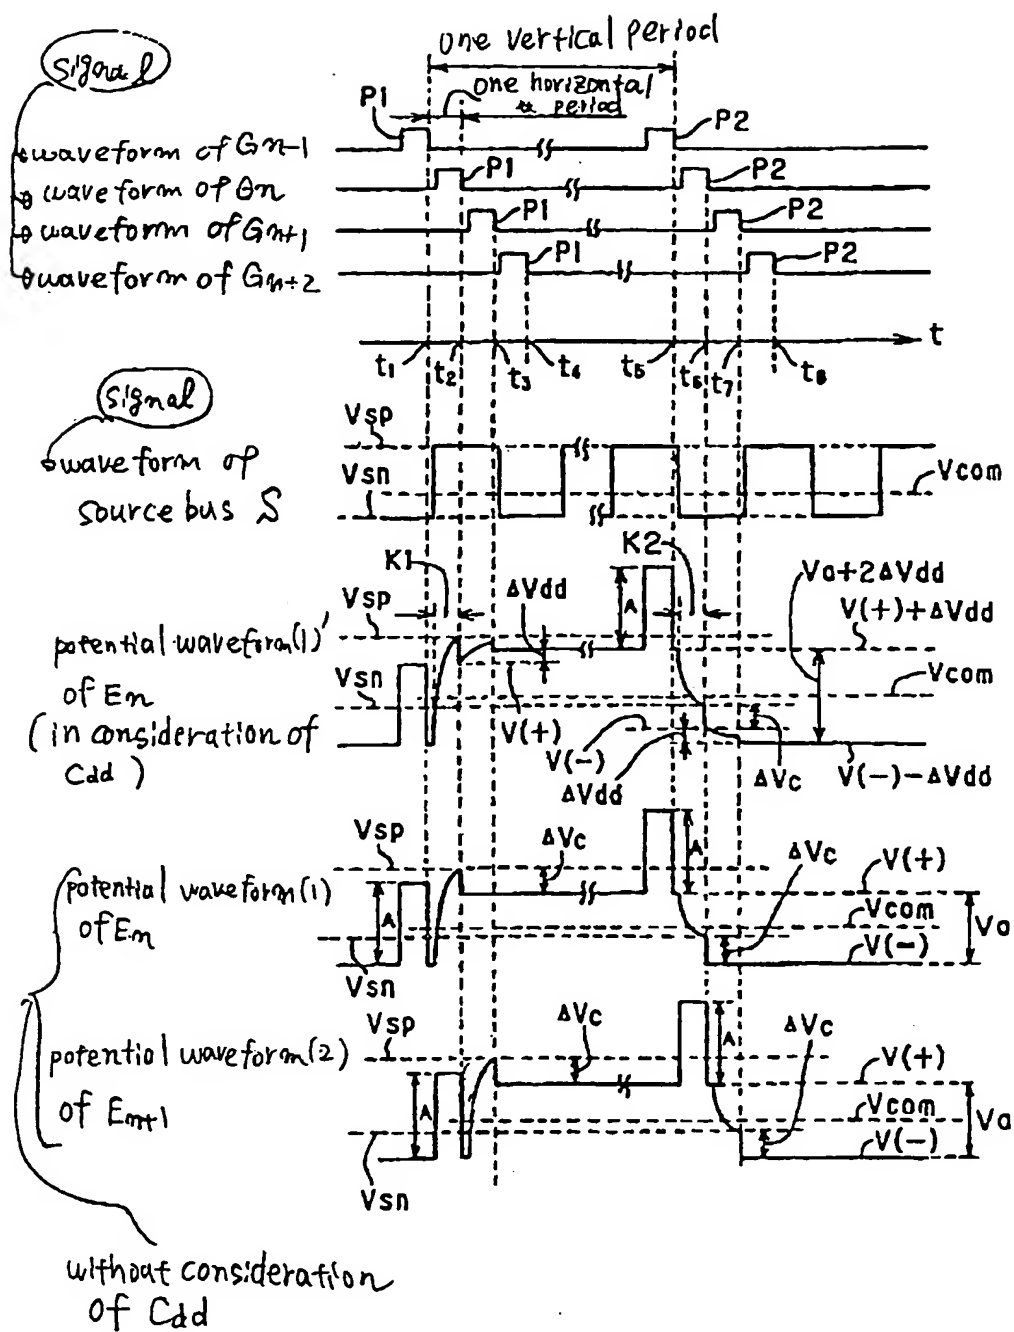 one vertical period
signal
one horizontal
period
P1
P2
waveform of Gn-1
P1
P2
waveform of Gn
P1
P2
waveform of Gn+1
P1
P2
waveform of Gn+2
t
t1
t2
t3
t4
t5
t6
t7
t8
signal
Vsp
waveform of
source bus S
Vsn
Vcom
K1
K2
Vsp
ΔVdd
A
Va+2ΔVdd
V(+)+ΔVdd
potential waveform(1)'
of En
(in consideration of
Cdd)
Vsn
Vcom
V(+)
V(-)
ΔVdd
ΔVc
V(-)-ΔVdd
Vsp
ΔVc
A
ΔVc
V(+)
potential waveform(1)
of En
A
Vcom
Va
V(-)
Vsn
Vsp
ΔVc
A
ΔVc
V(+)
potential waveform(2)
of En+1
A
Vcom
Va
V(-)
Vsn
without consideration
of Cdd